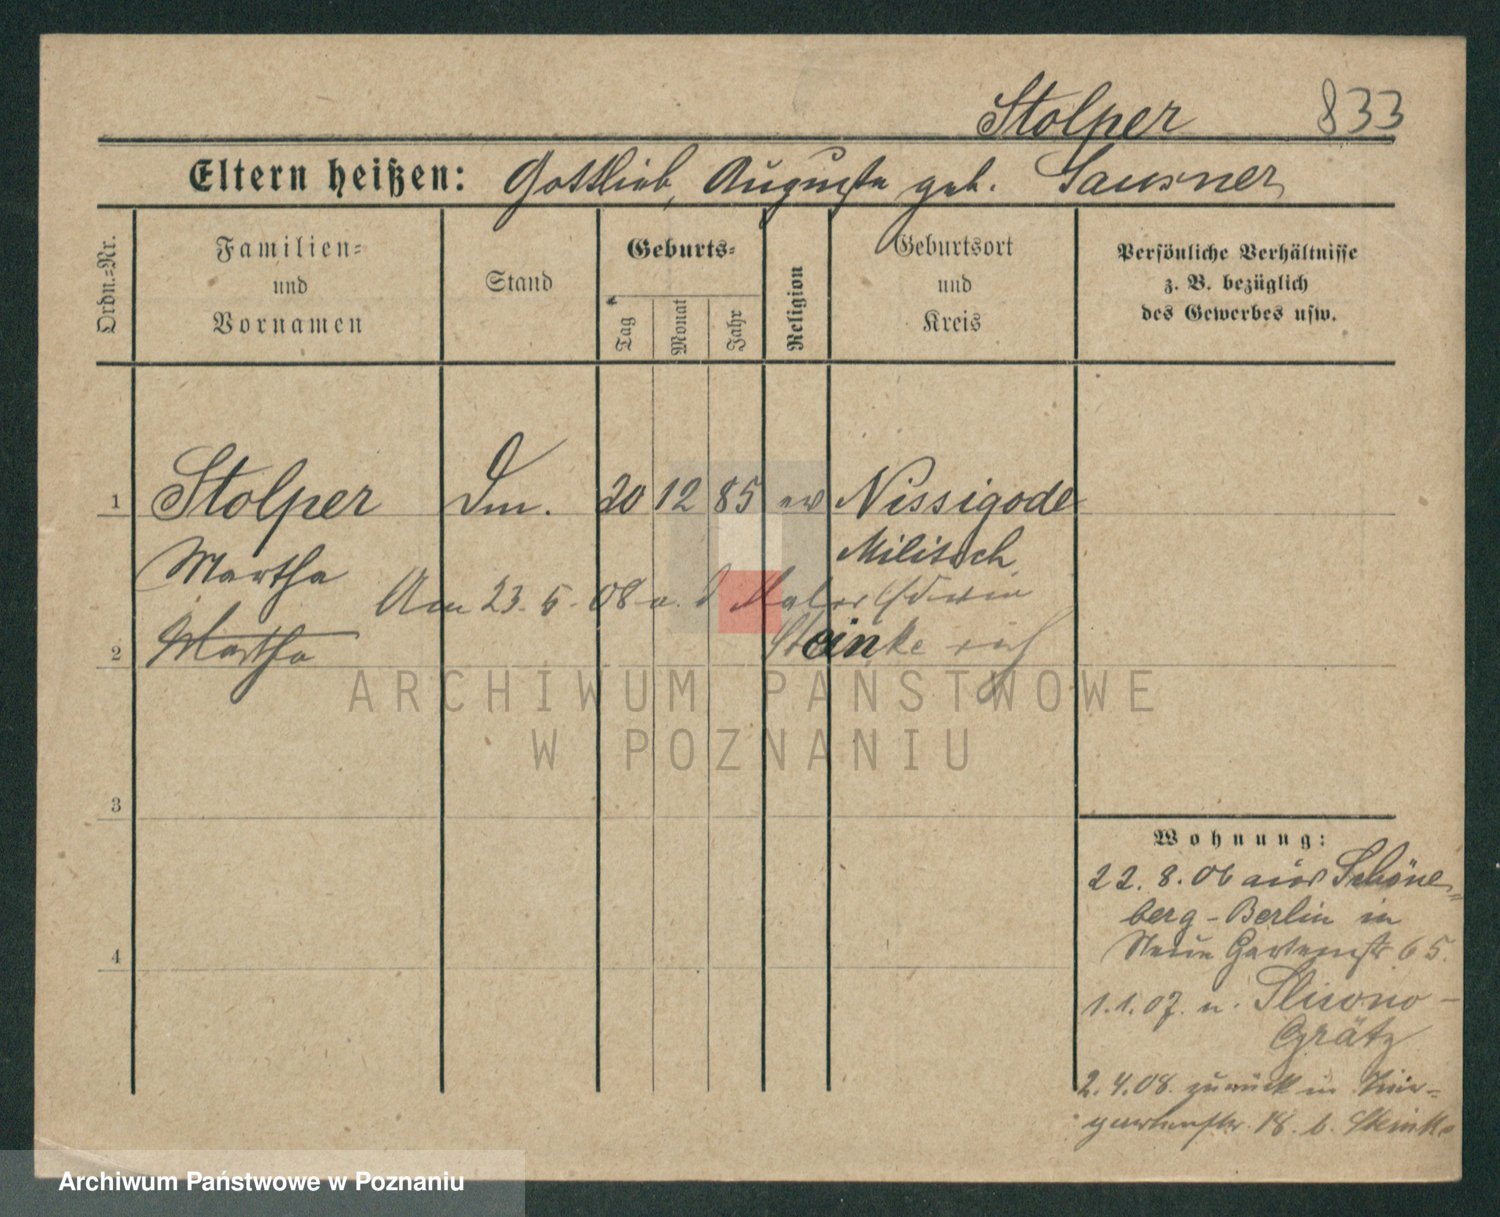 Stolper 833
Eltern heißen: Gottlieb, Auguste geb. Gausner
Ordn.-Nr.
Familien-
und
Vornamen
Stand
Geburts-
Tag
Monat
Jahr
Religion
Geburtsort
und
Kreis
Persönliche Verhältnisse
z. B. bezüglich
des Gewerbes usw.
1 Stolper 20 12 85 ev Nissigode
Martha Militsch
Am 23. 5. 08 a. d Maler Edwin
2 Martha Steinke
ARCHIWUM PAŃSTWOWE
W POZNANIU
3
4
Wohnung:
22. 8. 06 aus Schöne-
berg-Berlin in
Neue Gartenstr 65.
1. 1. 07. n. Slicono-
Grätz
2. 4. 08. zurück in Tier-
gartenstr. 18. b. Steinke
Archiwum Państwowe w Poznaniu